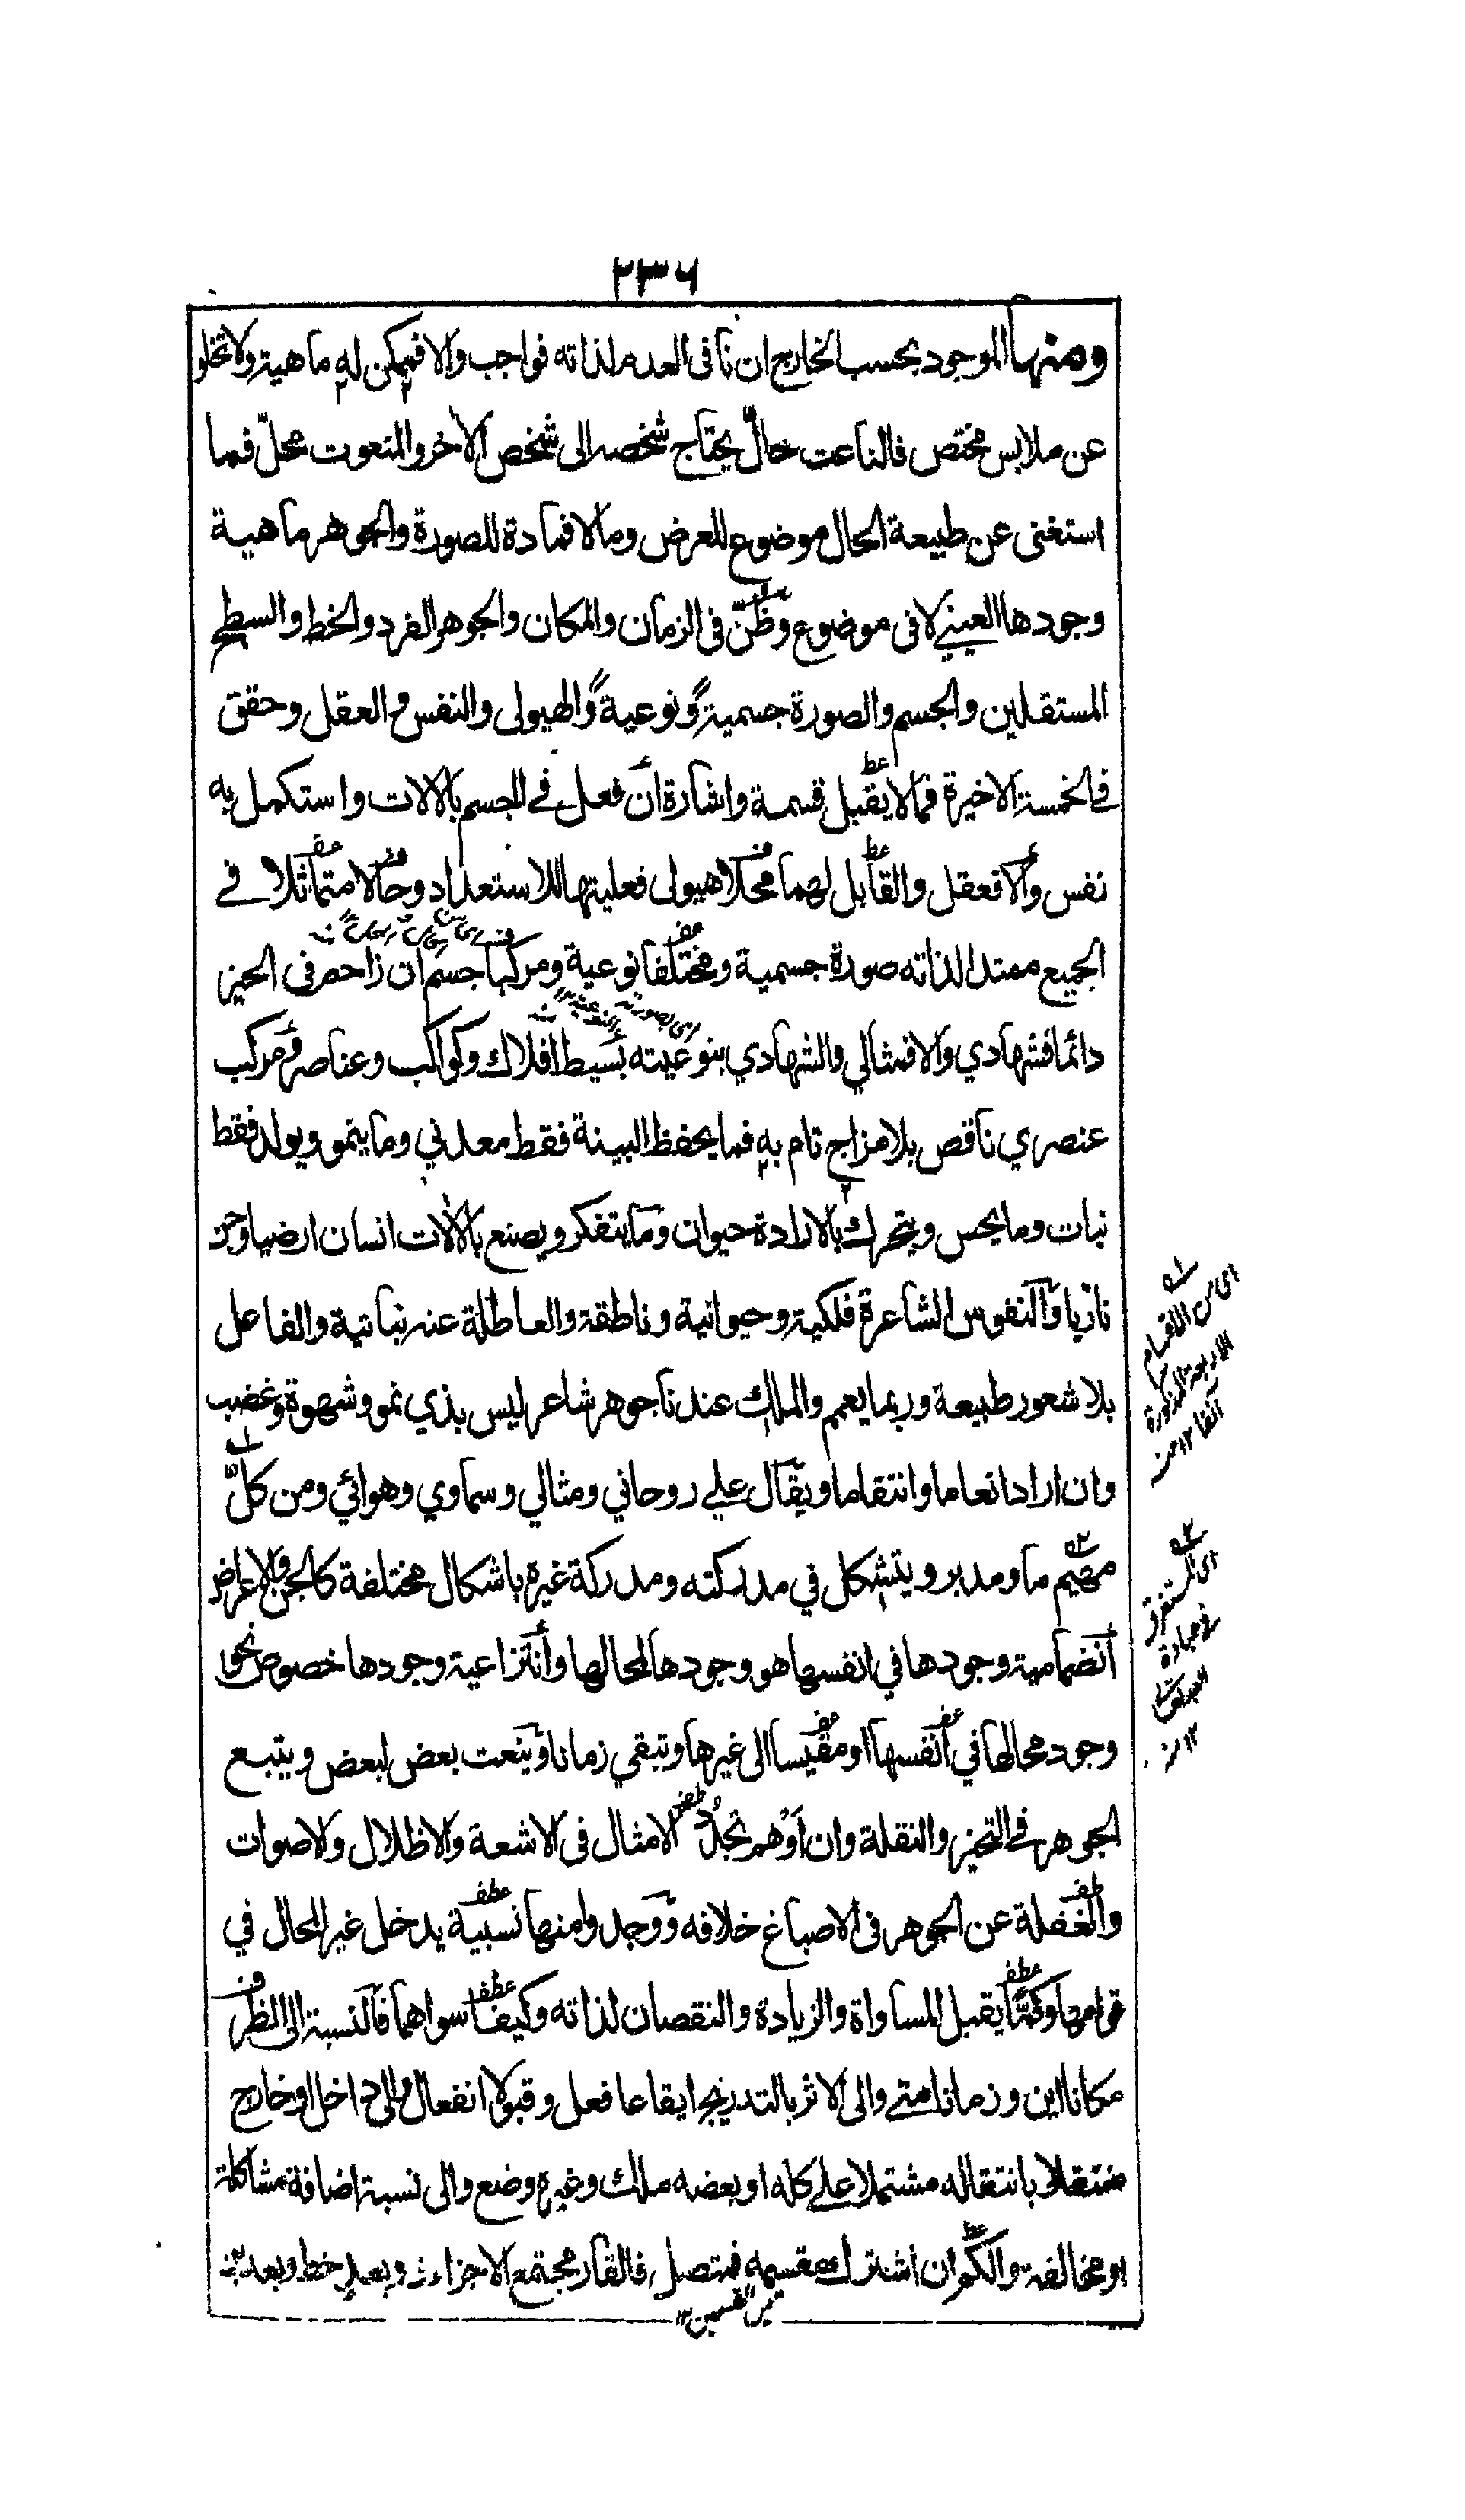 ٢٣٦
ومنها الموجود بحسب الخارج ان نافى العدم لذاته فواجب والا فممكن له ماهية ولا تخلو
عن ملابس مختص فالناعت حالّ يحتاج شخصه الى شخص الاخر والمنعوت محلّ فما
استغنى عن طبيعة الحال موضوع للعرض وما لا فمادة للصورة والجوهر ماهية
وجودها العيني لا فى موضوع وظنّ فى الزمان والمكان والجوهر الفرد والخط والسطح
المستقلين والجسم والصورة جسمية ونوعية والهيولى والنفس والعقل وحقق
في الخمسة الاخيرة فما لا يقبل قسمة واشارة ان فعل في الجسم بالالات واستكمل به
نفس والا فعقل والقابل لهما محلا هيولى فعليتها للاستعداد وحالا متماثلا في
الجميع ممتد الذاته صورة جسمية ومختلفا نوعية ومركبا جسم ان زاحم فى الحيز
دائما فشهادي والا فمثالي والشهادي بنوعيته بسيط افلاك وكواكب وعناصر ومركب
عنصري ناقص بلا مزاج تام به فما يحفظ البينة فقط معدني وما ينمو ويولد فقط
نبات وما يحس ويتحرك بالارادة حيوان وما يتفكر ويصنع بالالات انسان ارضيا وجن
ناريا والنفوس الشاعرة فلكية وحيوانية وناطقة والعاطلة عنه نباتية والفاعل
بلا شعور طبيعة وربما يعمم والملك عندنا جوهر شاعر ليس بذي نمو وشهوة وغضب
وان اراد انعاما وانتقاما ويقال علے روحاني ومثالي وسماوي وهوائي ومن كلّ
مهيم ما ومدبر ويتشكل في مدركته ومدركة غيره باشكال مختلفة كالجن والاعراض
انضمامية وجودها في انفسها هو وجودها لمحالها وانتزاعية وجودها خصوص نحو
وجود محالها في انفسها او مقيسا الى غيرها وتبقى زمانا وينعت بعض لبعض ويتبع
الجوهر في التحيز والنقلة وان اوهم تجدد الامثال فى الاشعة والاظلال والاصوات
والغفلة عن الجوهر فى الاصباغ خلافه ووجدوا منها نسبية يدخل غير المحال في
قوامها وكمّا يقبل المساواة والزيادة والنقصان لذاته وكيفا سواهما فالنسبة الى الظرف
مكانا اين وزمانا متے والى الاثر بالتدريج ايقاعا فعل وقبولا انفعال والى داخل او خارج
منتقلا بانتقاله مشتملا علے كله او بعضه ملك وغيره وضع والى نسبة اضافة مشاكلة
او مخالفة والكم ان اشترك مقسمه فمتصل فالقار مجتمع الاجزاء ذو بعد خط وبعدين
بين القسمين ١٢
اى من الاقسام
الاربعة المذكورة
آنفا ١٢ منه